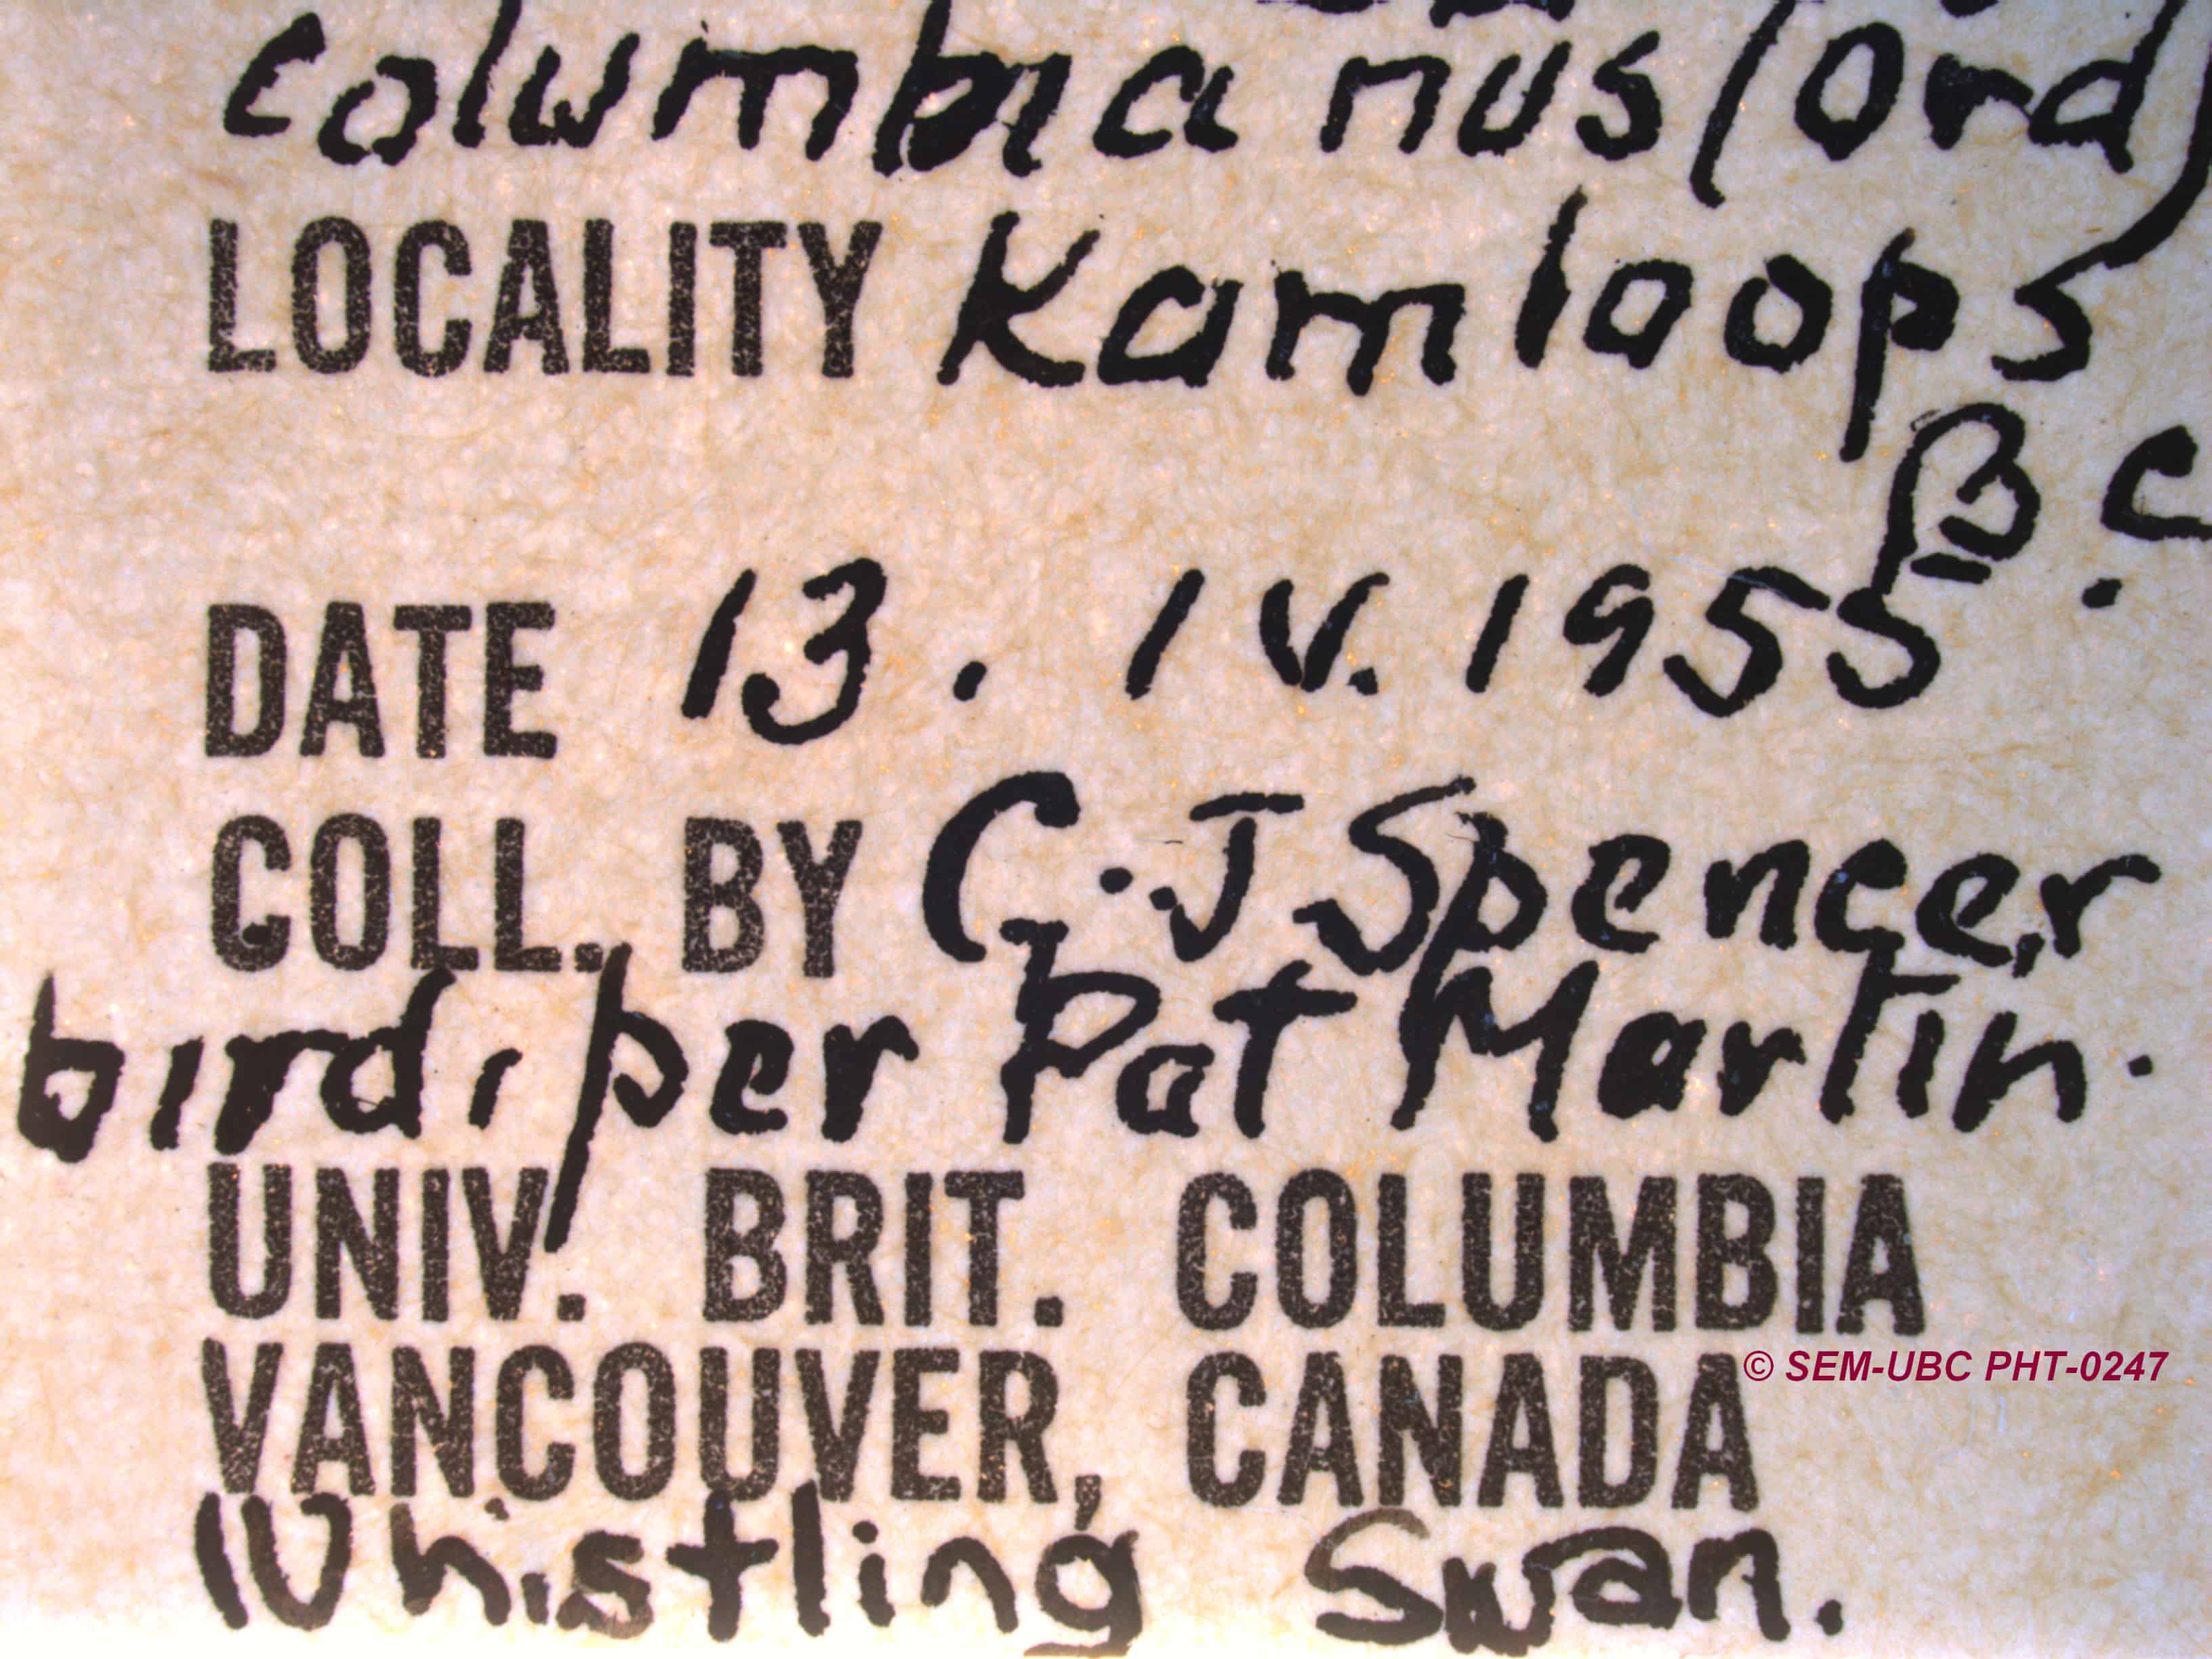 columbianus (Ord)
LOCALITY Kamloops
B.C
DATE 13. IV. 1955
COLL. BY G. J Spencer
bird, per Pat Martin.
UNIV. BRIT. COLUMBIA
© SEM-UBC PHT-0247
VANCOUVER, CANADA
Whistling Swan.